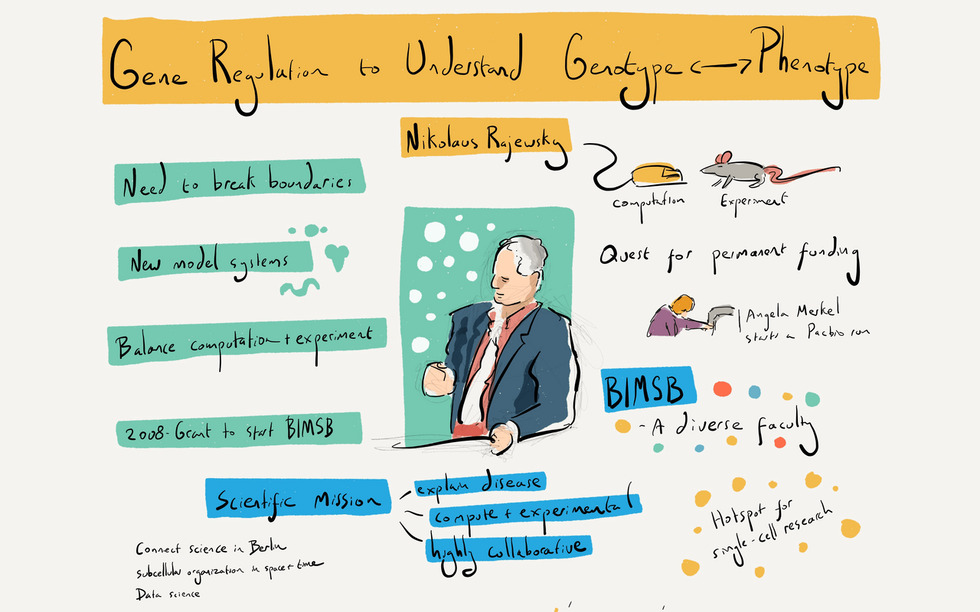 Gene Regulation to Understand Genotype <-> Phenotype
Nikolaus Rajewsky
Need to break boundaries
New model systems
Balance computation + experiment
2008 - Grant to start BIMSB
computation
Experiment
Quest for permanent funding
Angela Merkel
starts a Pacbio run
BIMSB
- A diverse faculty
Scientific Mission
explain disease
compute + experimental
highly collaborative
Hotspot for
single-cell research
Connect science in Berlin
subcellular organization in space + time
Data science